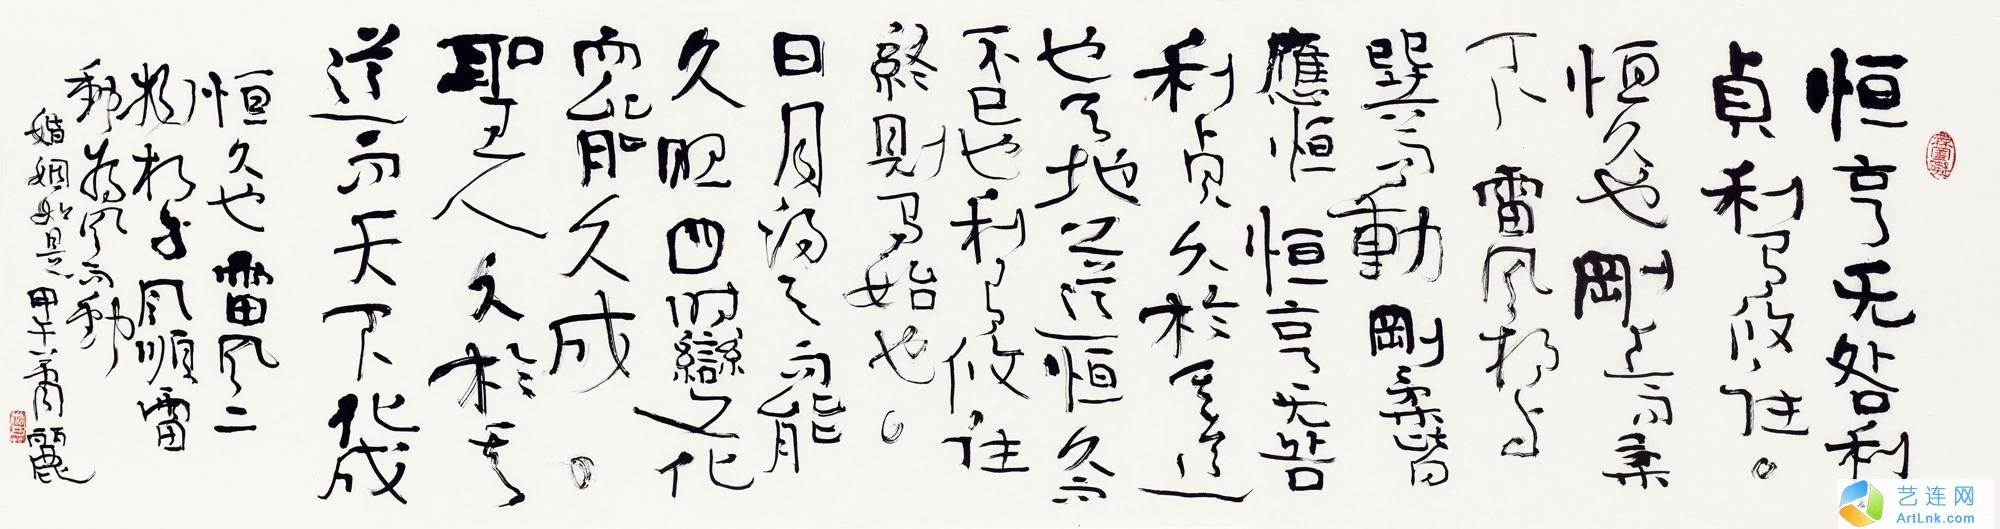 恒亨无咎利
貞利有攸往。
恒久也剛上而柔
下雷風相与
巽而動剛柔皆
應恒恒亨无咎
利貞久於其道
也天地之道恒久而
不已也利有攸往
終則有始也。
日月得天而能
久照四時變化
而能久成。
聖人久於其
道而天下化成
恒久也雷風二
物相与風順雷
動為風而動
婚姻如是甲午蕭麗
艺连网
ArtLnk.com